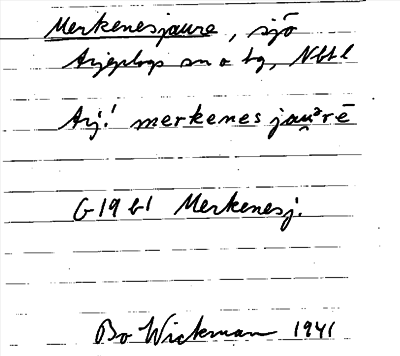 Merkenesjaure, sjö
Arjeplogs sn o tg, Nbtl
Arj! merkenes jau̯ᵊrē
G19 bl Merkenesj.
Bo Wickman 1941